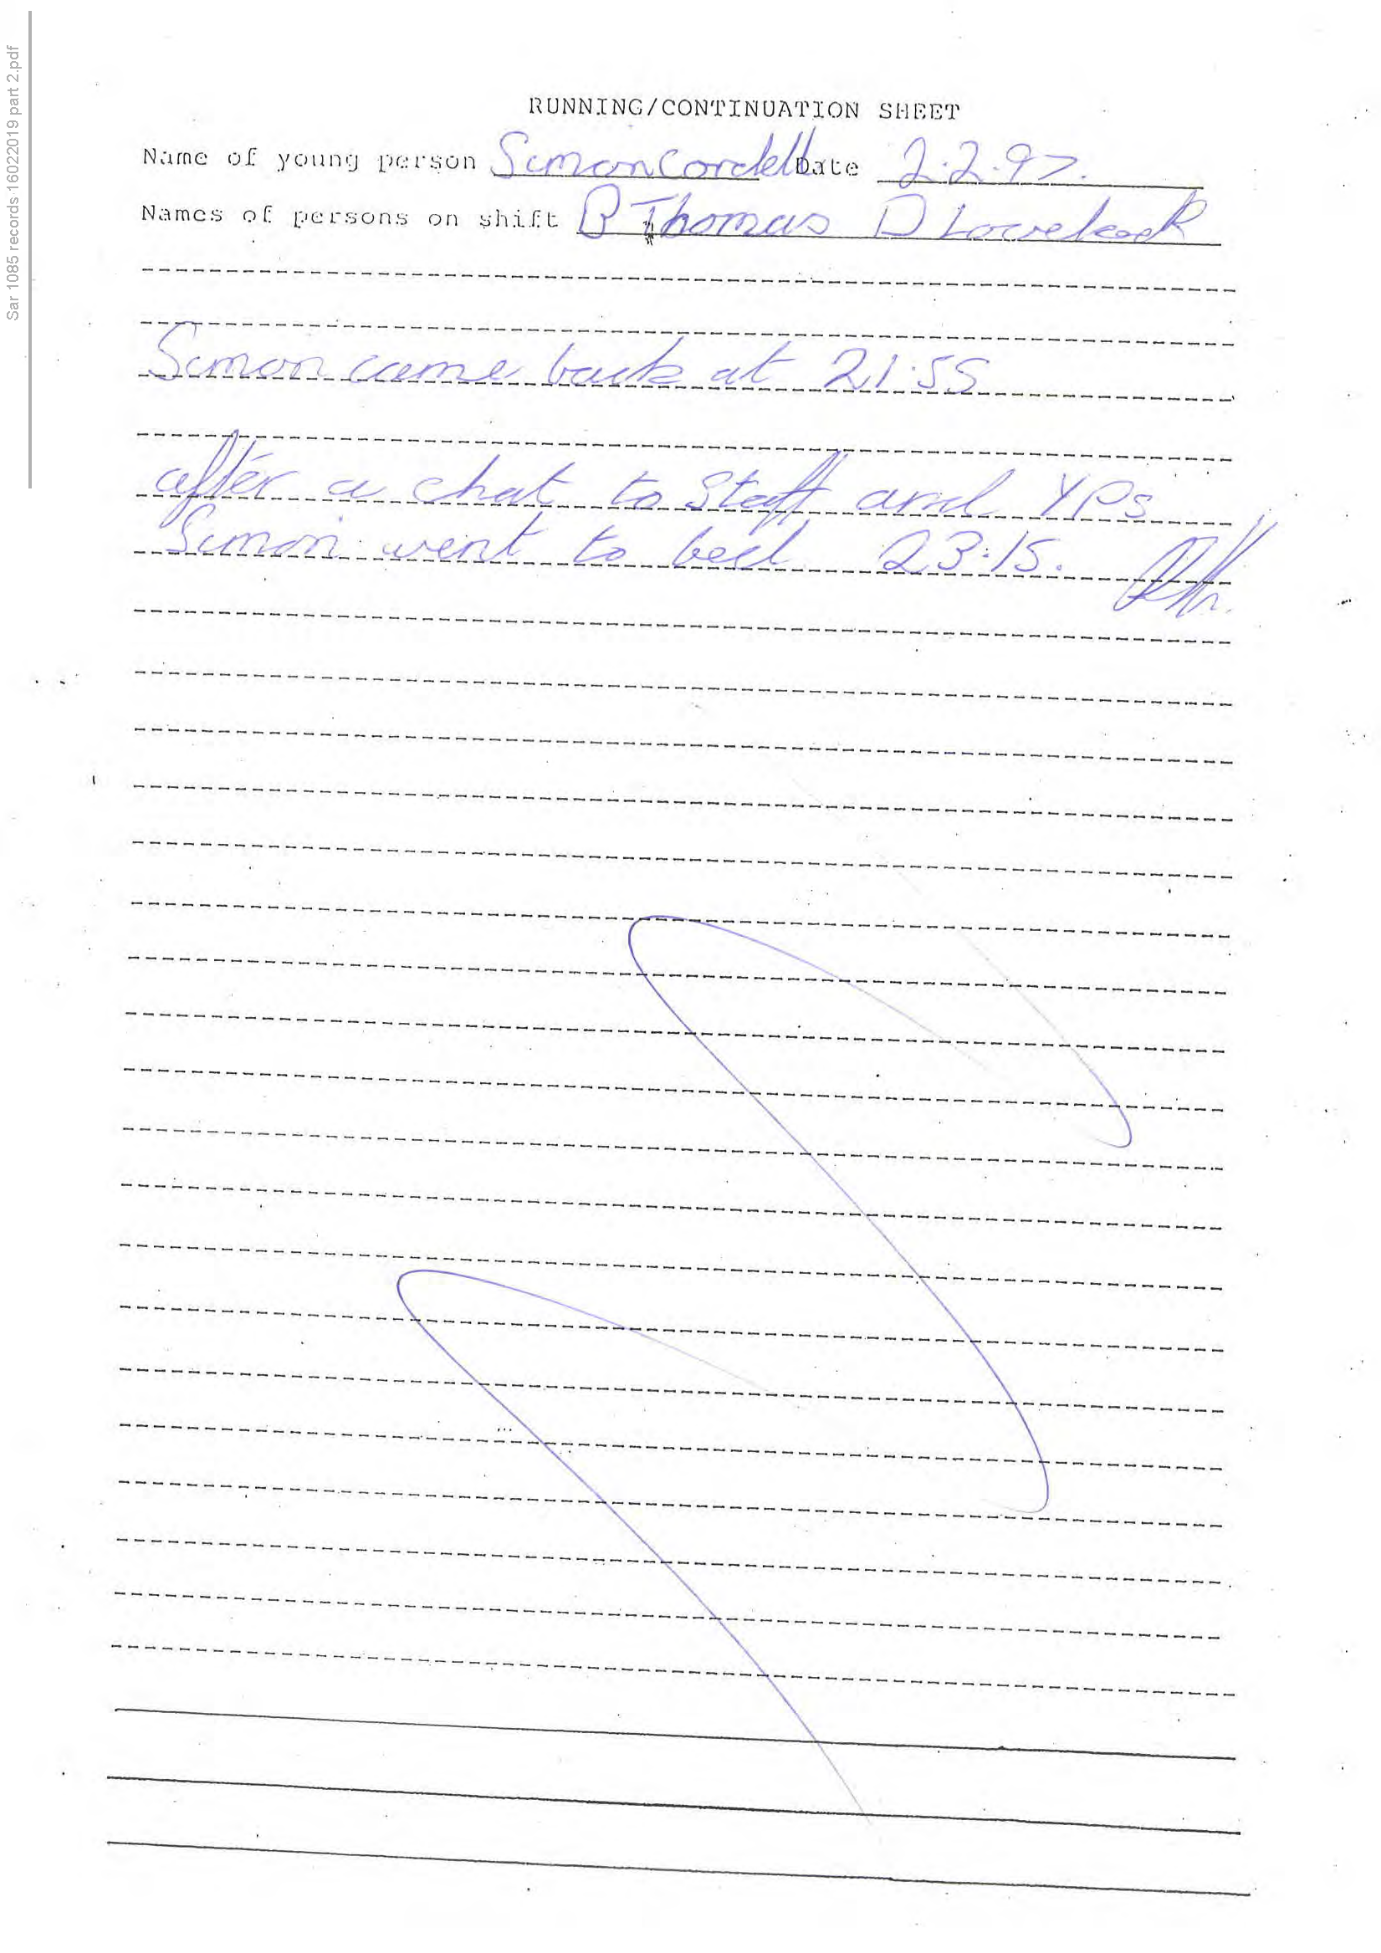 Sar 1085 records 16022019 part 2.pdf
RUNNING/CONTINUATION SHEET
Name of young person Simon Cordell Date 2.2.97.
Names of persons on shift B Thomas D Lovelock
Simon came back at 21.55
after a chat to staff and YPs
Simon went to bed 23:15.